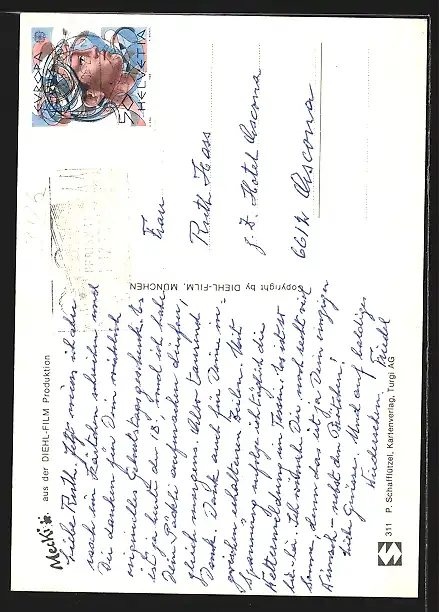 Mecki aus der DIEHL-FILM Produktion
Liebe Ruth. Jetzt muss ich aber
noch ein Kärtchen schreiben und
Dir danken für Dein
originelles Geburtstagsgeschenk. Es
ist ja heute der 18. und ich habe
Dein Päckli aufmachen dürfen,
gleich morgens. Also tausend
Dank. Danke auch für Deine so-
eben erhaltenen Zeilen. Mit
Spannung verfolge ich täglich die
Wettermeldung im Tessin. Es ist so
bei Ich wünsche Dir noch recht viel
Sonne, denn das ist ja Dein einziger
Wunsch – nebst den
Lieb Grüsse. Und auf baldiges
Wiedersehen. Friedel
Copyright by DIEHL-FILM, MÜNCHEN
EUROPA
HELVETIA
50
Frau
Ruth Hass
z. Z. Hotel Ascona
6612 Ascona
311 P. Schafflützel, Kartenverlag, Turgi AG